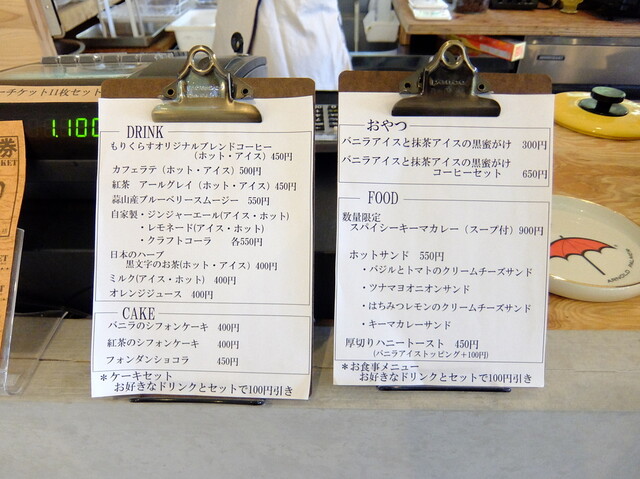 ーチケット11枚セット
1,100
券
DRINK
もりくらすオリジナルブレンドコーヒー
(ホット・アイス) 450円
カフェラテ (ホット・アイス) 500円
紅茶 アールグレイ (ホット・アイス) 450円
蒜山産ブルーベリースムージー 550円
自家製・ジンジャーエール(アイス・ホット)
・レモネード(アイス・ホット)
・クラフトコーラ 各550円
日本のハーブ
黒文字のお茶(ホット・アイス) 400円
ミルク(アイス・ホット) 400円
オレンジジュース 400円
CAKE
バニラのシフォンケーキ 400円
紅茶のシフォンケーキ 400円
フォンダンショコラ 450円
*ケーキセット
お好きなドリンクとセットで100円引き
おやつ
バニラアイスと抹茶アイスの黒蜜がけ 300円
バニラアイスと抹茶アイスの黒蜜がけ
コーヒーセット 650円
FOOD
数量限定
スパイシーキーマカレー (スープ付) 900円
ホットサンド 550円
・バジルとトマトのクリームチーズサンド
・ツナマヨオニオンサンド
・はちみつレモンのクリームチーズサンド
・キーマカレーサンド
厚切りハニートースト 450円
(バニラアイストッピング+100円)
*お食事メニュー
お好きなドリンクとセットで100円引き